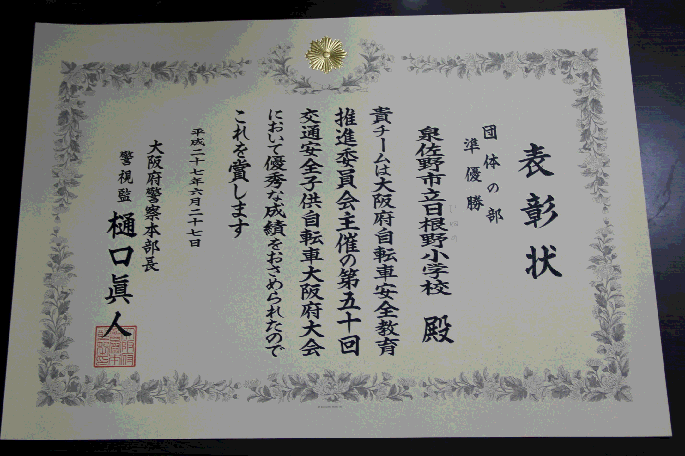 表彰状
団体の部
準優勝
泉佐野市立日根野小学校 殿
貴チームは大阪府自転車安全教育
推進委員会主催の第五十回
交通安全子供自転車大阪府大会
において優秀な成績をおさめられたので
これを賞します
平成二十七年六月二十七日
大阪府警察本部長
警視監 樋口眞人